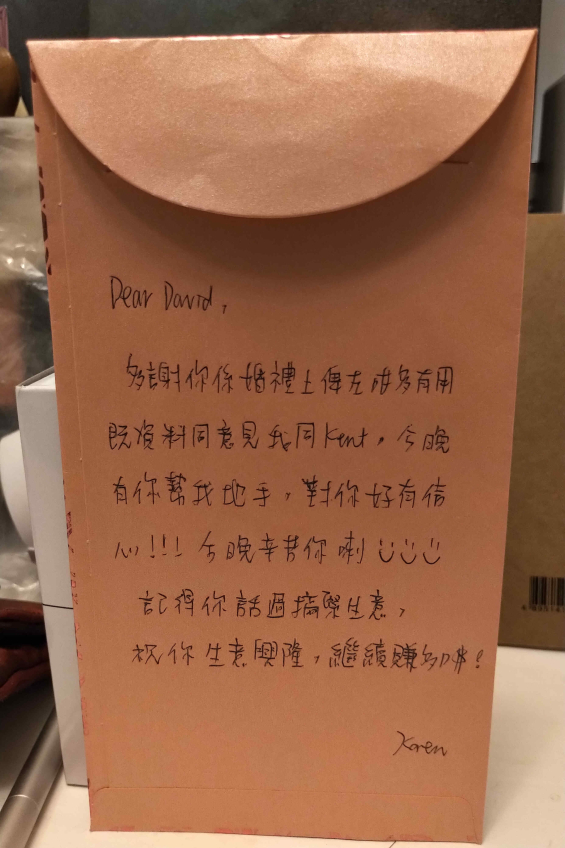 Dear David,
多謝你係婚禮上俾左咁多有用
既資料同意見我同Kent，今晚
有你幫我地手，對你好有信
心!!! 今晚辛苦你喇
記得你話過搞緊生意，
祝你生意興隆，繼續賺多D啲!
Karen